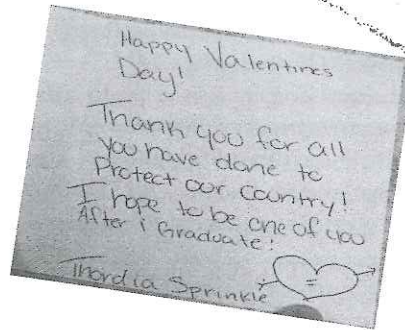 Happy Valentines
Day!
Thank you for all
you have done to
Protect our Country!
I hope to be one of you
After i Graduate!
Thordia Sprinkle
=